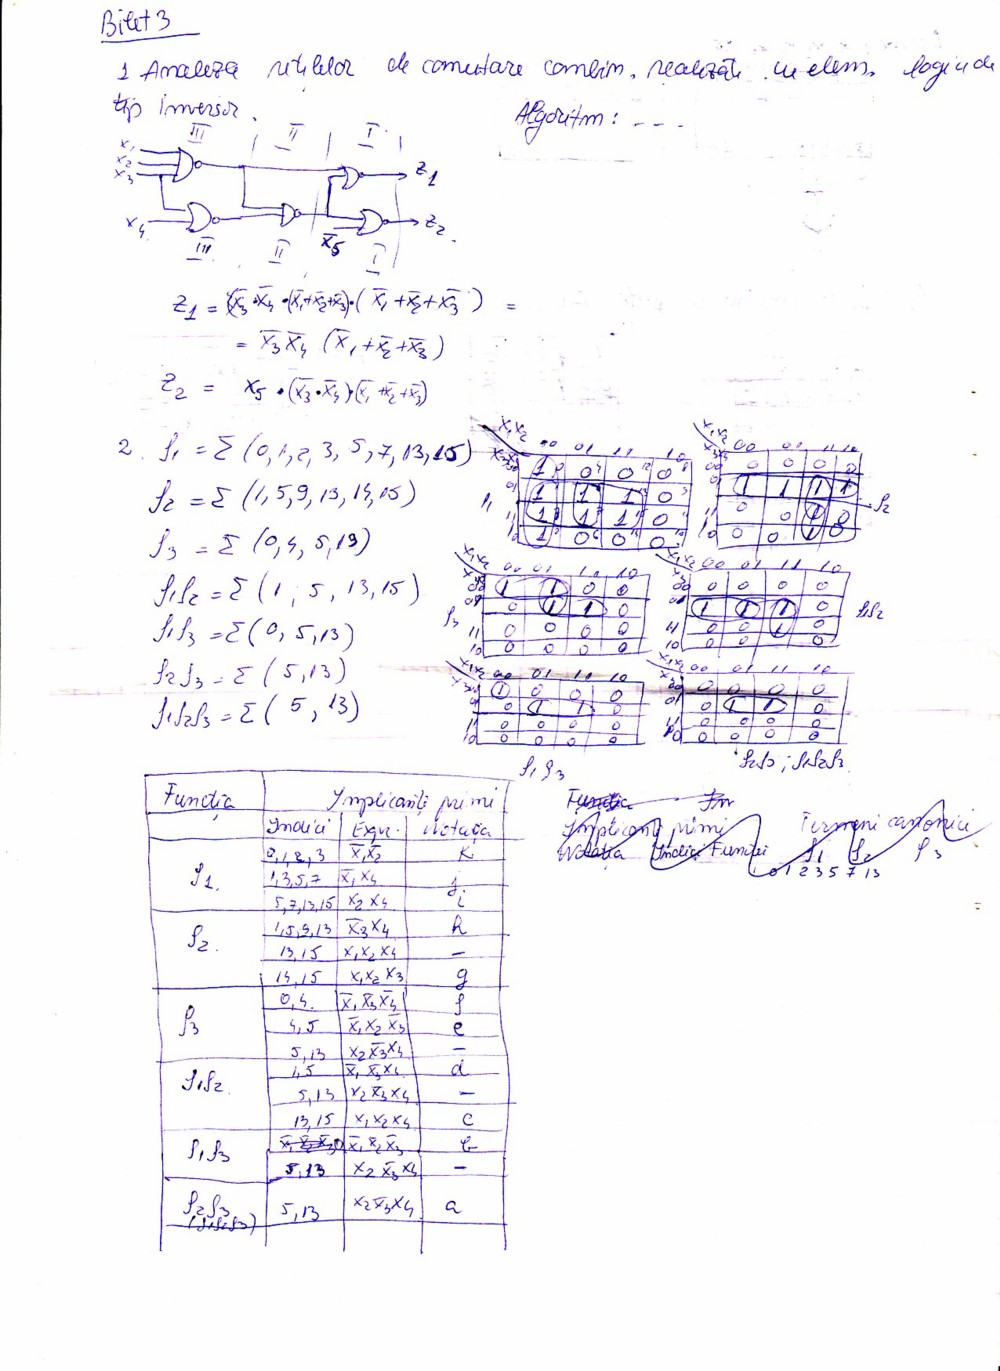 Bilet 3
1 Analiza rețelelor de comutare combin. realizate cu elem. logice de
tip inversor.
Algoritm: - - -
III II I
x1
x2
x3
Z1
x4
x̄5
Z2
III II I
Z1 = (x̄3·x̄4·(x̄1+x̄2+x̄3)·(x̄1+x̄2+x̄3) =
= x̄3x̄4 (x̄1+x̄2+x̄3)
Z2 = x5·(x̄3·x̄4)·(x̄1+x̄2+x̄3)
2. f1 = Σ (0,1,2,3,5,7,13,15)
f2 = Σ (1,5,9,13,14,15)
f3 = Σ (0,4,5,13)
f1f2 = Σ (1,5,13,15)
f1f3 = Σ (0,5,13)
f2f3 = Σ (5,13)
f1f2f3 = Σ (5,13)
x1x2
00 01 11 10
1 0 0 0
1 1 1 0
1 1 1 0
1 0 0 0
x1x2
00 01 11 10
0 0 0 0
1 1 1 1
0 0 1 0
0 0 1 0
f2
x1x2 00 01 11 10
1 1 0 0
0 1 1 0
0 0 0 0
0 0 0 0
f3
x1x2 00 01 11 10
0 0 0 0
1 1 1 0
0 0 1 0
0 0 0 0
f1f2
x1x2 00 01 11 10
1 0 0 0
0 1 1 0
0 0 0 0
0 0 0 0
f1f3
x1x2 00 01 11 10
0 0 0 0
0 1 1 0
0 0 0 0
0 0 0 0
f2f3; f1f2f3
Funcția Implicanți primi
Indici Expr. Notația
f1. 0,1,2,3 x̄1x̄2 k
1,3,5,7 x̄1x4 j
5,7,13,15 x2x4 i
f2. 1,5,9,13 x̄3x4 h
13,15 x1x2x4 –
14,15 x1x2x3 g
f3 0,4. x̄1x̄3x̄4 f
4,5 x̄1x2x̄3 e
5,13 x2x̄3x4 –
f1f2. 1,5 x̄1x̄3x4 d
5,13 x2x̄3x4 –
13,15 x1x2x4 c
f1f3 x̄1x̄2x̄3 b
5,13 x2x̄3x4 –
f2f3 (f1f2f3) 5,13 x2x̄3x4 a
Funcția
Implicanți primi Termeni canonici
Notația Indici Funcții f1 f2 f3
0 1 2 3 5 7 13